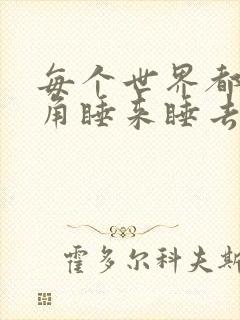 每个世界都
角睡来睡去
霍多尔科夫斯